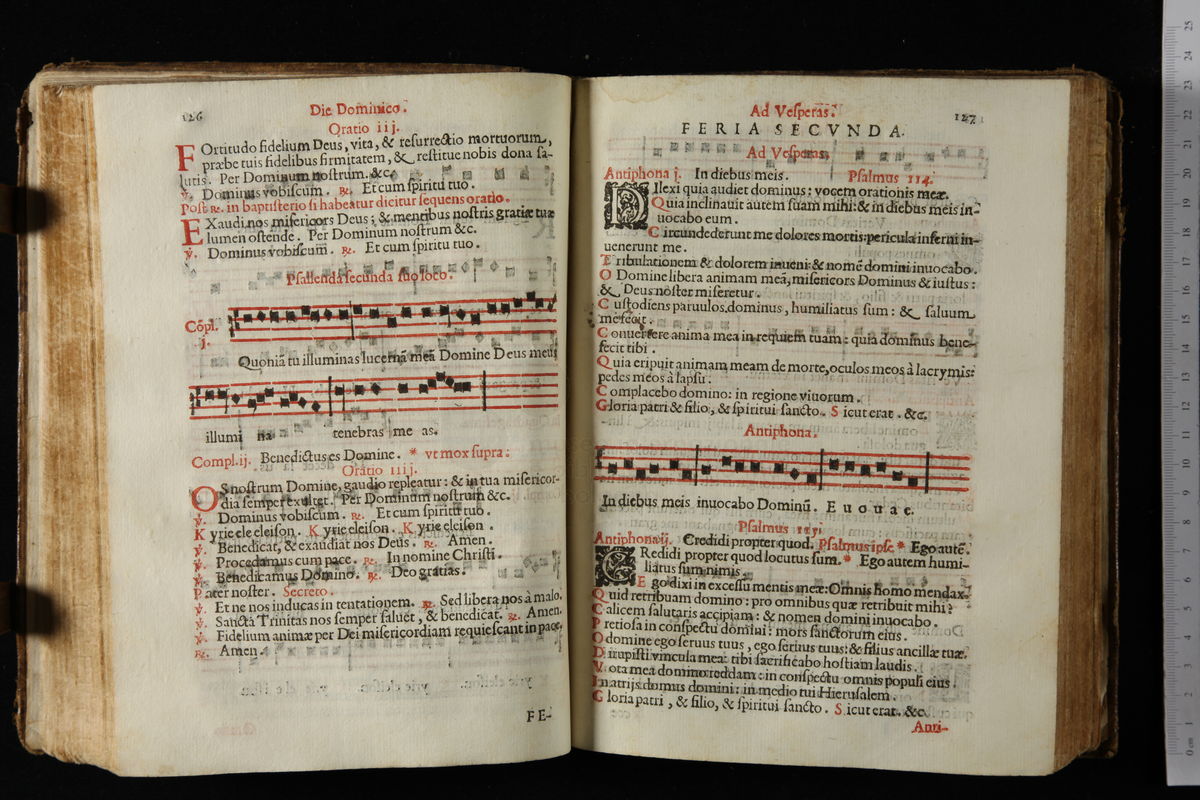 126
Die Dominico.
Oratio iij.
FOrtitudo fidelium Deus, vita, & resurrectio mortuorum,
præbe tuis fidelibus firmitatem, & restitue nobis dona sa-
lutis. Per Dominum nostrum. &c.
℣. Dominus vobiscum. ℞. Et cum spiritu tuo.
Post ℞. in baptisterio si habeatur dicitur sequens oratio.
EXaudi nos misericors Deus; & mentibus nostris gratiæ tuæ
lumen ostende. Per Dominum nostrum &c.
℣. Dominus vobiscum. ℞. Et cum spiritu tuo.
Psallenda secunda suo loco.
Cõpl.
j.
Quoniã tu illuminas lucernã meã Domine Deus meus
illumi na tenebras me as.
Compl. ij. Benedictus es Domine. * vt mox supra:
Oratio iiij.
OS nostrum Domine, gaudio repleatur: & in tua misericor-
dia semper exultet. Per Dominum nostrum &c.
℣. Dominus vobiscum. ℞. Et cum spiritu tuo.
Kyrie ele eleison. Kyrie eleison. Kyrie eleison.
℣. Benedicat, & exaudiat nos Deus. ℞. Amen.
℣. Procedamus cum pace. ℞. In nomine Christi.
℣. Benedicamus Domino. ℞. Deo gratias.
Pater noster. Secreto.
℣. Et ne nos inducas in tentationem. ℞. Sed libera nos à malo.
℣. Sancta Trinitas nos semper saluet, & benedicat. ℞. Amen.
℣. Fidelium animæ per Dei misericordiam requiescant in pace.
℞. Amen.
FE-
Ad Vesperas.
127
FERIA SECVNDA.
Ad Vesperas,
Antiphona j. In diebus meis. Psalmus 114.
DIlexi quia audiet dominus: vocem orationis meæ.
Quia inclinauit autem suam mihi: & in diebus meis in-
uocabo eum.
Circundederunt me dolores mortis: pericula inferni in-
uenerunt me.
Tribulationem & dolorem inueni: & nomẽ domini inuocabo.
O Domine libera animam meã, misericors Dominus & iustus:
& Deus noster miseretur.
Custodiens paruulos dominus, humiliatus sum: & saluum
me fecit.
Conuertere anima mea in requiem tuam: quia dominus bene-
fecit tibi.
Quia eripuit animam meam de morte, oculos meos à lacrymis:
pedes meos à lapsu:
Complacebo domino: in regione viuorum.
Gloria patri & filio, & spiritui sancto. Sicut erat. &c.
Antiphona.
In diebus meis inuocabo Dominũ. E u o u a e.
Psalmus 115.
Antiphona ij. Credidi propter quod. Psalmus ipse * Ego autẽ.
CRedidi propter quod locutus sum. * Ego autem humi-
liatus sum nimis.
Ego dixi in excessu mentis meæ: Omnis homo mendax.
Quid retribuam domino: pro omnibus quæ retribuit mihi?
Calicem salutaris accipiam: & nomen domini inuocabo.
Pretiosa in conspectu domini: mors sanctorum eius.
O domine ego seruus tuus, ego seruus tuus: & filius ancillæ tuæ.
Dirupisti vincula mea: tibi sacrificabo hostiam laudis.
Vota mea domino reddam: in conspectu omnis populi eius.
In atrijs domus domini: in medio tui Hierusalem.
Gloria patri, & filio, & spiritui sancto. Sicut erat. &c.
Anti-